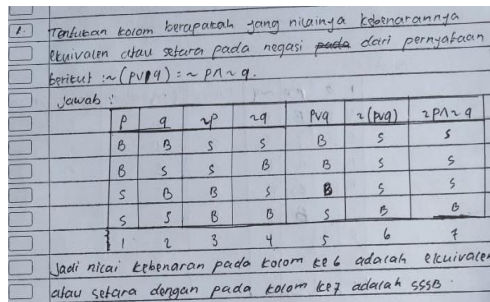 1. Tentukan kolom berapakah yang nilainya kebenarannya
ekuivalen atau setara pada negasi dari pernyataan
berikut : ~(pvq) = ~p∧~q.
Jawab :
p q ~p ~q pvq ~(pvq) ~p∧~q
B B S S B S S
B S S B B S S
S B B S B S S
S S B B S B B
1 2 3 4 5 6 7
Jadi nilai kebenaran pada kolom ke 6 adalah ekuivalen
atau setara dengan pada kolom ke 7 adalah SSSB.